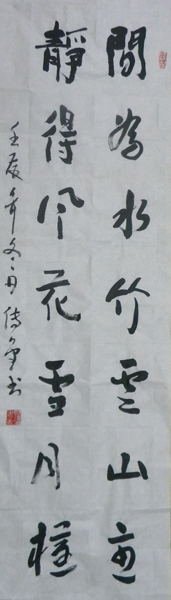 閒為水竹雲山主
靜得風花雪月權
壬辰年冬月傳學書